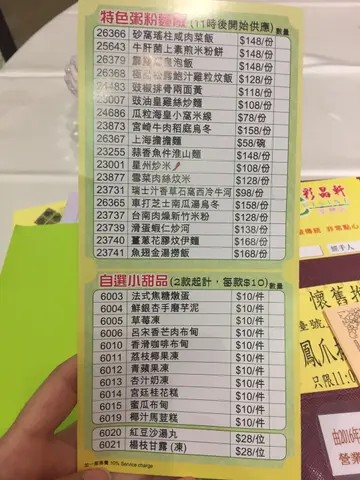 特色粥粉麵飯 (11時後開始供應) 數量
26366 砂窩瑤柱咸肉菜飯 $148/份
25643 牛肝菌上素煎米粉餅 $148/份
26379 泡飯 $148/份
26368 松露鮑汁雞粒炆飯 $128/份
24483 豉椒排骨兩面黃 $118/份
23007 豉油皇雞絲炒麵 $108/份
24686 瓜粒海皇小窩米線 $78/份
23873 宮崎牛肉稻庭烏冬 $158/份
26367 上海擔擔麵 $58/碗
23255 蒜香魚件淮山麵 $148/份
23001 星州炒米 $108/份
22877 雪菜肉絲炆米 $128/份
23731 瑞士汁香草石窩西冷牛河 $98/份
26365 車打芝士南瓜湯烏冬 $158/份
23737 台南肉燥新竹米粉 $128/份
23739 滑蛋蝦仁炒河 $138/份
23740 薑蔥花膠炆伊麵 $168/份
23741 魚翅金湯撈飯 $168/份
自選小甜品 (2款起計，每款$10) 數量
6003 法式焦糖燉蛋 $10/件
6004 鮮銀杏手磨芋泥 $10/件
6005 草莓凍 $10/件
6006 呂宋香芒肉布甸 $10/件
6010 香滑咖啡布甸 $10/件
6011 荔枝椰果凍 $10/件
6012 青蘋果凍 $10/件
6013 杏汁奶凍 $10/件
6014 宮廷桂花糕 $10/件
6015 蜜瓜布甸 $10/件
6019 椰汁馬荳糕 $10/件
6020 紅豆沙湯丸 $28/位
6021 楊枝甘露 (凍) $28/位
加一服務費 10% Service charge
彩晶軒
經手人
懷舊
臺號
鳳爪
只限11:0
由2016年
營業